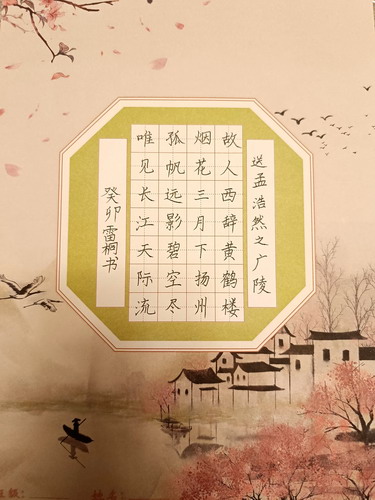 送孟浩然之广陵
故人西辞黄鹤楼
烟花三月下扬州
孤帆远影碧空尽
唯见长江天际流
癸卯雷桐书